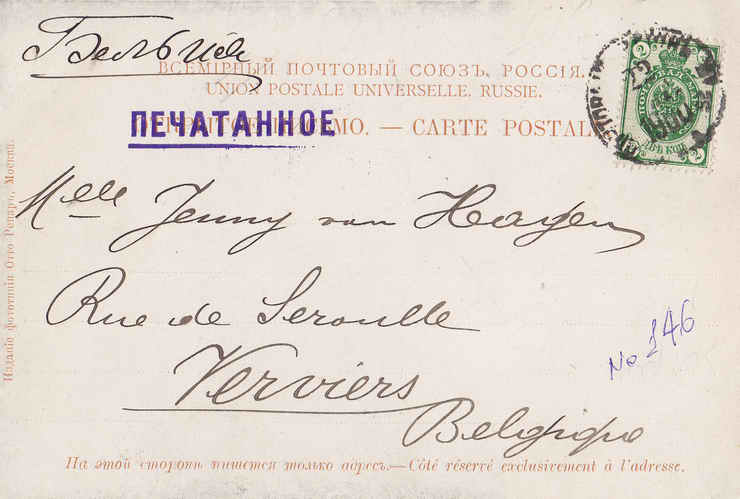 Бельгія
ВСЕМІРНЫЙ ПОЧТОВЫЙ СОЮЗЪ. РОССІЯ.
UNION POSTALE UNIVERSELLE. RUSSIE.
ПЕЧАТАННОЕ
ОТКРЫТОЕ ПИСЬМО. — CARTE POSTALE
2 2
Mlle Jenny van Haagen
Rue de Seroulle
Verviers
Belgique
No 146
На этой сторонѣ пишется только адресъ.—Côté réservé exclusivement à l'adresse.
Изданіе фототипіи Отто Ренаръ, Москва.